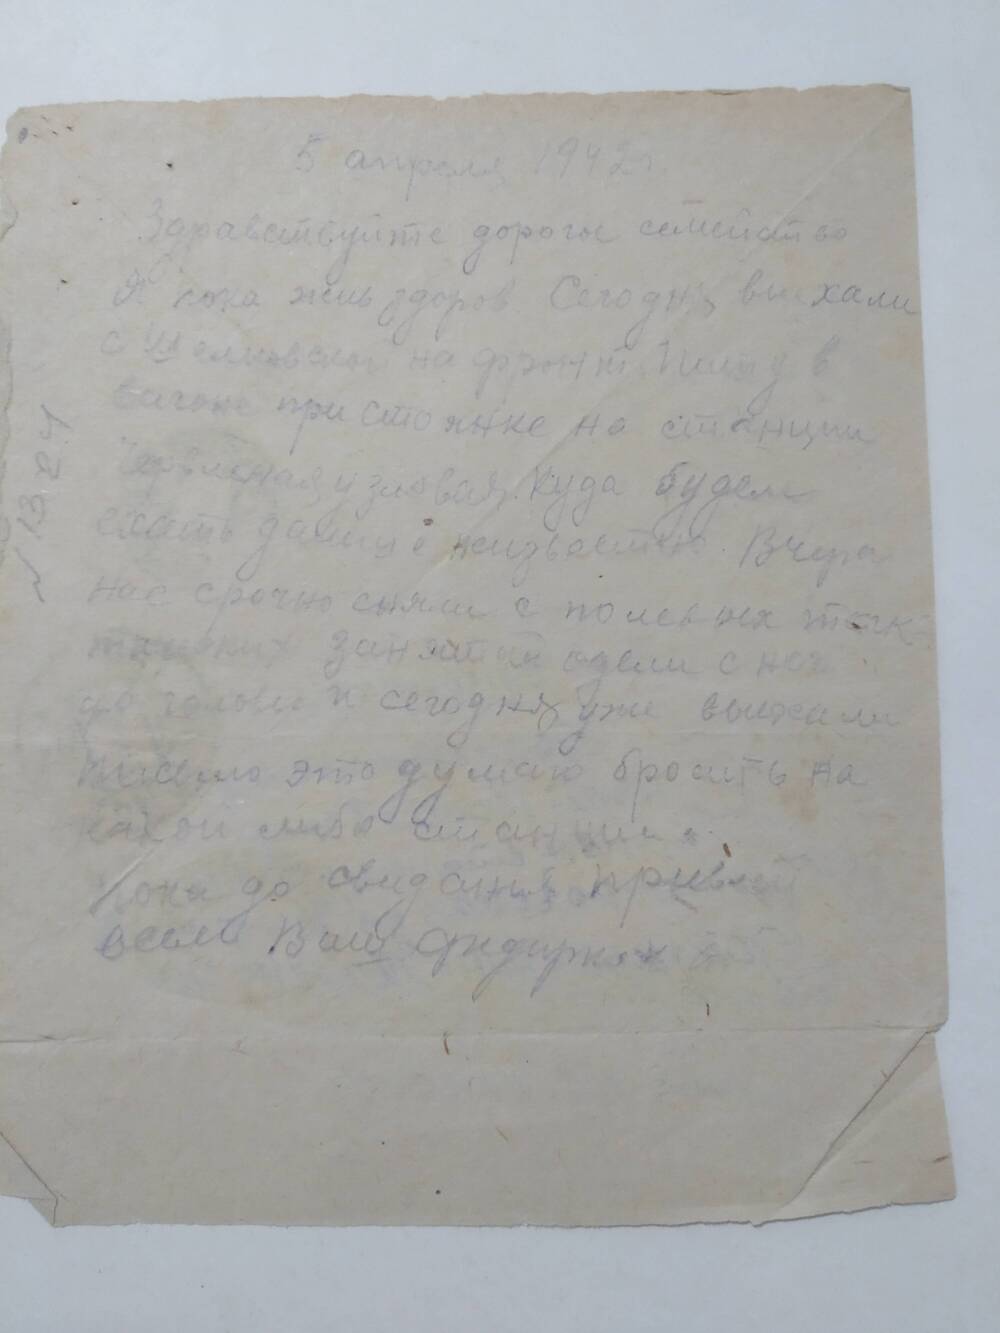 5 апреля 1942 г.
Здравствуйте дорогое семейство
Я пока жив здоров. Сегодня выехали
с Шелковской на фронт. Пишу в
вагоне при стоянке на станции
Червленая узловая. Куда будем
ехать дальше неизвестно. Вчера
нас срочно сняли с полевых такт
занятий одели с ног
до головы и сегодня уже выехали
Письмо это думаю бросить на
какой либо станции.
Пока до свидания привет
всем Ваш
№ 1324